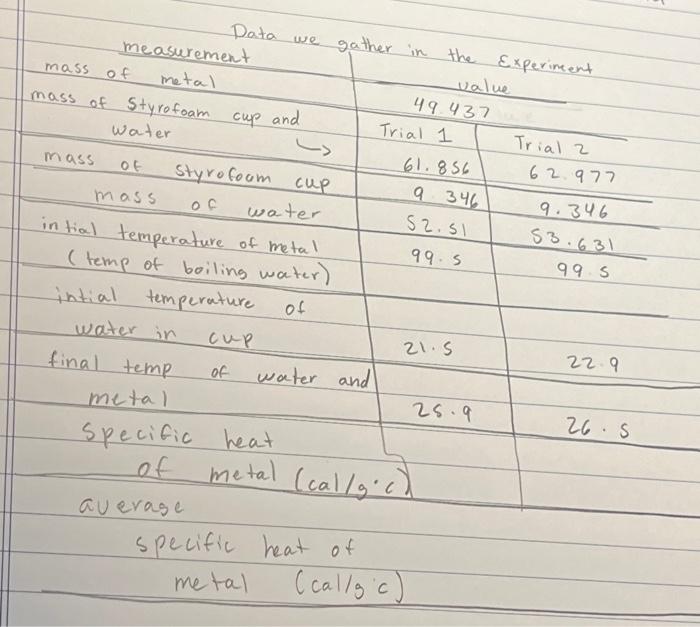 Data we gather in the Experiment
measurement value
mass of metal 49.437
mass of Styrofoam cup and Trial 1 Trial 2
water → 61.856 62.977
mass of styrofoam cup 9.346 9.346
mass of water 52.51 53.631
intial temperature of metal 99.5 99.5
(temp of boiling water)
intial temperature of
water in cup 21.5 22.9
final temp of water and
metal 25.9 26.5
specific heat
of metal (cal/g.c)
average
specific heat of
metal (cal/g.c)